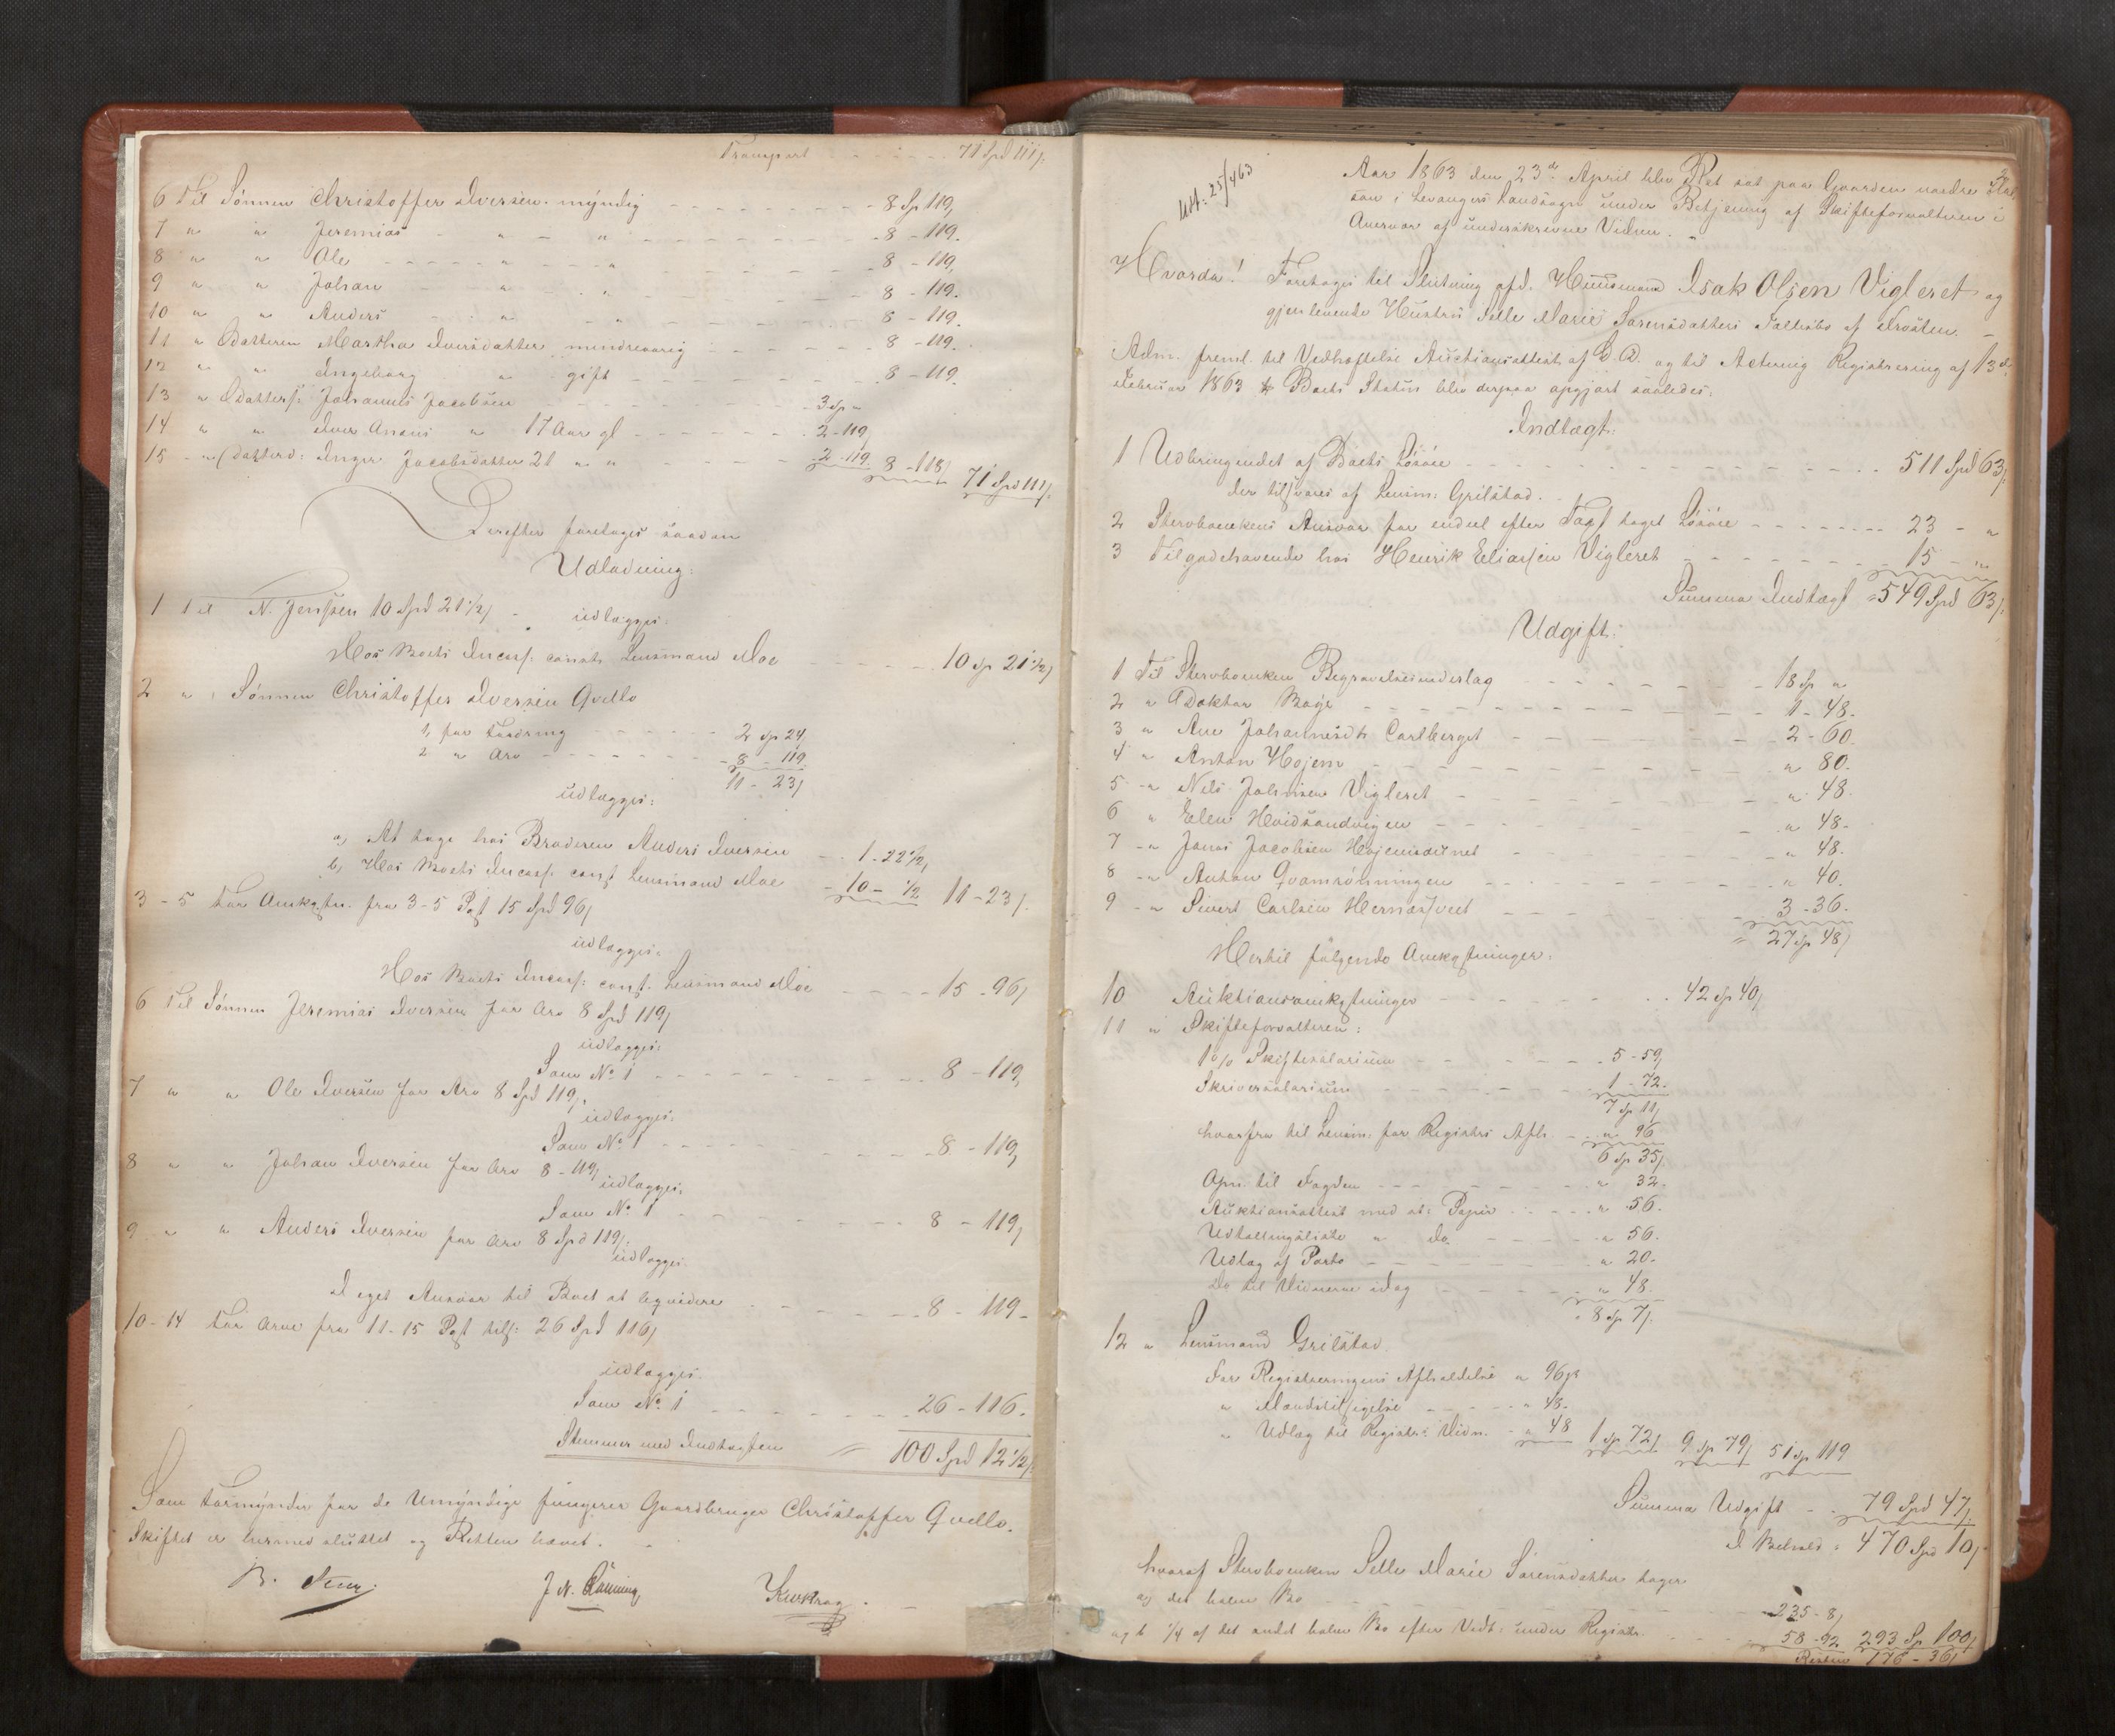 Transport - - - - - - 71 Spd 111/:
6 Til Sønnen Christoffer Iversen myndig - - - - - - - - 8 Sp 119,
7 " " Jeremias - " - " - - - - - - - 8 - 119.
8 " " Ole - - - - - " - - - " - - - - - 8 - 119,
9 " " Johan - " - " - - - - - - 8 - 119.
10 " " Anders - " - " - - - - - - 8 - 119.
11 " Datteren Martha Iversdatter mindreaarig - - - - - 8 - 119.
12 " " Ingeborg " gift - - - - - - 8 - 119.
13 " Datters: Johannes Jacobsen - - - - - 3 Sp "
14 " " Iver Anani " 17 Aar gl - - - - - 2 - 119,
15 - " Datterd: Inger Jacobsdatter 21 " " - - - - 2 - 119. 8 - 118/ 71 Spd 111/:
Derefter foretoges saadan
Udlodning:
1 Til N. Jenssen 10 Spd 21 1/2/ - udlægges:
Hos Boets Incass. const. Lensmand Moe - - - - - 10 Sp 21 1/2/
2 " Sønnen Christoffer Iversen Qvello
1, for Fordring - - - - - 2 Sp 24,
2 " Arv - - - - - - - 8 - 119.
11 - 23/
udlægges:
a, At tage hos Broderen Anders Iversen - - 1 - 22 1/2,
b, Hos Boets Incass. const Lensmand Moe - 10 - 1/2 11 - 23/.
3 - 5 For Omkostn. fra 3-5 Post 15 Spd 96/
udlægges:
Hos Boets Incass: const. Lensmand Moe - - - - 15 - 96/
6 Til Sønnen Jeremias Iversen for Arv 8 Spd 119/
udlægges:
Som No 1 - - - - - - - - - 8 - 119,
7 " " Ole Iversen for Arv 8 Spd 119/.
udlægges:
Som No 1 - - - - - - - - 8 - 119,
8 " " Johan Iversen for Arv 8 - 119,
udlægges:
Som No 1 - - - - - - - 8 - 119,
9 " " Anders Iversen for Arv 8 Spd 119/.
udlægges
I eget Ansvar til Boet at liqvidere - - - - - - 8 - 119 -
10 - 14 For Arve fra 11-15 Post tils: 26 Spd 116/
udlægges.
Som No 1 - - - - - - - - 26 - 116.
Stemmer med Indtægten = 100 Spd 12 1/2/
Som Formynder for de Umyndige fungerer Gaardbruger Christoffer Qvello.
Skiftet er hermed sluttet og Retten hævet. -
Udt: 25/4 63
Aar 1863 den 23de April blev Ret sat paa Gaarden nordre
i Levangers Landsogn under Betjening af Skifteforvalteren i
Overvær af underskrevne Vidner. -
Hvorda! Foretoges til Slutning afd. Huusmand Isak Olsen Vigleret og
gjenlevende Hustru Selle Marie Sørensdatters Fællesbo af Frosten. -
Adm. freml. til Vedhæftelse Auctionsattest af D. D. og til Actering Registrering af 13de
Februar 1863 Boets Status blev derpaa opgjort saaledes:
Indtægt:
1 Udbringendet af Boets Løsøre - - - - - - - - - - 511 Spd 63/:
der tilsvares af Lensm: Grilstad. -
2 Stervboenkens Ansvar for endeel efter Taxt taget Løsøre - - - - - - - - 23 - "
3 Tilgodehavende hos Henrik Eliassen Vigleret - - - - - - - - 15 - "
Summa Indtægt = 549 Spd 63/:
Udgift:
1 Til Stervboenken Begravelsesunderlag - - - - - - - 18 Sp "
2 " Doktor Bøye - - - - - - - - - - - 1 - 48.
3 " Ane Johannesdtr Carlberget - - - - - - - 2 - 60.
4 " Anton Hojem - - - - - - - - - - " 80.
5 " Nils Johnsen Vigleret - - - - - - - - " 48.
6 " Elen Hvidsandvigen - - - - - - - - " 48 -
7 " Jonas Jacobsen Hojemsaunet - - - - " 48.
8 " Anton Qvamrønningen - - - - - - - " 40.
9 " Sivert Carlsen Hernæstvedt - - - - - - 3 - 36.
= 27 Sp 48/
Hertil følgende Omkostninger:
10 Auktionsomkostninger - - - - - - - 42 Sp 40/
11 " Skifteforvalteren:
1 % Skiftesalarium - - - - - - 5 - 59,
Skriversalarium - - - - - - 1 - 72.
7 Sp 11/
hvorfra til Lensm: for Registrs Afh. - - " 96
6 Sp 35/.
Opn. til Fogden - - - - - - - " 32.
Auktionsattest med st: Papir - - - - " 56.
Udtællingsliste " do - - - - " 56.
Udlæg af Porto - - - - - - - - " 20.
Do til Vidnerne idag - - - - " 48.
= 8 Sp 7/.
12 " Lensmand Grilstad
For Registreringens Afholdelse " 96 s
" Mandstilsigelse - - - - - " 48.
" Udlæg til Registr: Vidn. - " 48 1 Sp 72/ 9 Sp 79/ 51 Sp 119
Summa Udgift - - 79 Spd 47/:
I Behold = 470 Spd 16/.
hvoraf Stervboenken Selle Marie Sørensdatter tager
a, det halve Bo - - - - - - - - - 235 - 8/
og b 1/4 af det andet halve Bo efter Vedt: under Registr. - - - 58 - 92 293 Sp 100/
Resten 176 - 36/